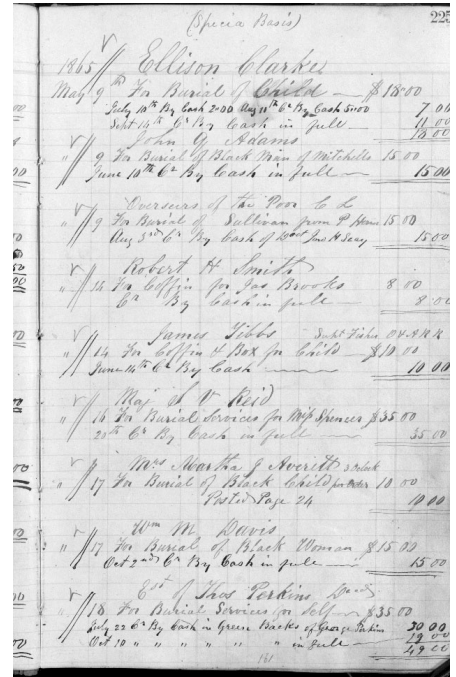 (Specia Basis) 225
1865 Ellison Clarke
May 9th For Burial of Child $18.00
July 10th By Cash 2.00 Aug 11th Cr By Cash 5.00 7 00
Sept 14th Cr By Cash in full 11 00
18 00
John Q Adams
" 9 For Burial of Black Man of Mitchells 15 00
June 10th Cr By Cash in full 15 00
Overseers of the Poor C L
" 9 For Burial of Sullivan from P House 15 00
Aug 3rd Cr By Cash of Jno H Seay 15 00
Robert H Smith
" 14 For Coffin for Jas Brooks 8 00
Cr By Cash in full 8 00
James Tibbs Supt Fisher O & A R R
" 14 For Coffin & Box for Child $10.00
June 14th Cr By Cash 10 00
Maj S V Reid
" 16 For Burial Services for Miss Spencer $35 00
25th Cr By Cash in full 35 00
Mrs Martha J Averett
" 17 For Burial of Black Child 10 00
Posted Page 24 10 00
Wm M Davis
" 17 For Burial of Black Woman $15 00
Oct 2nd Cr By Cash in full 15 00
Est of Thos Perkins Decd
" 18 For Burial Services for Self $35 00
July 22 Cr By Cash in Green Backs of George Perkins 30 00
Oct 10 " " " " " " in full 19 00
49 00
161